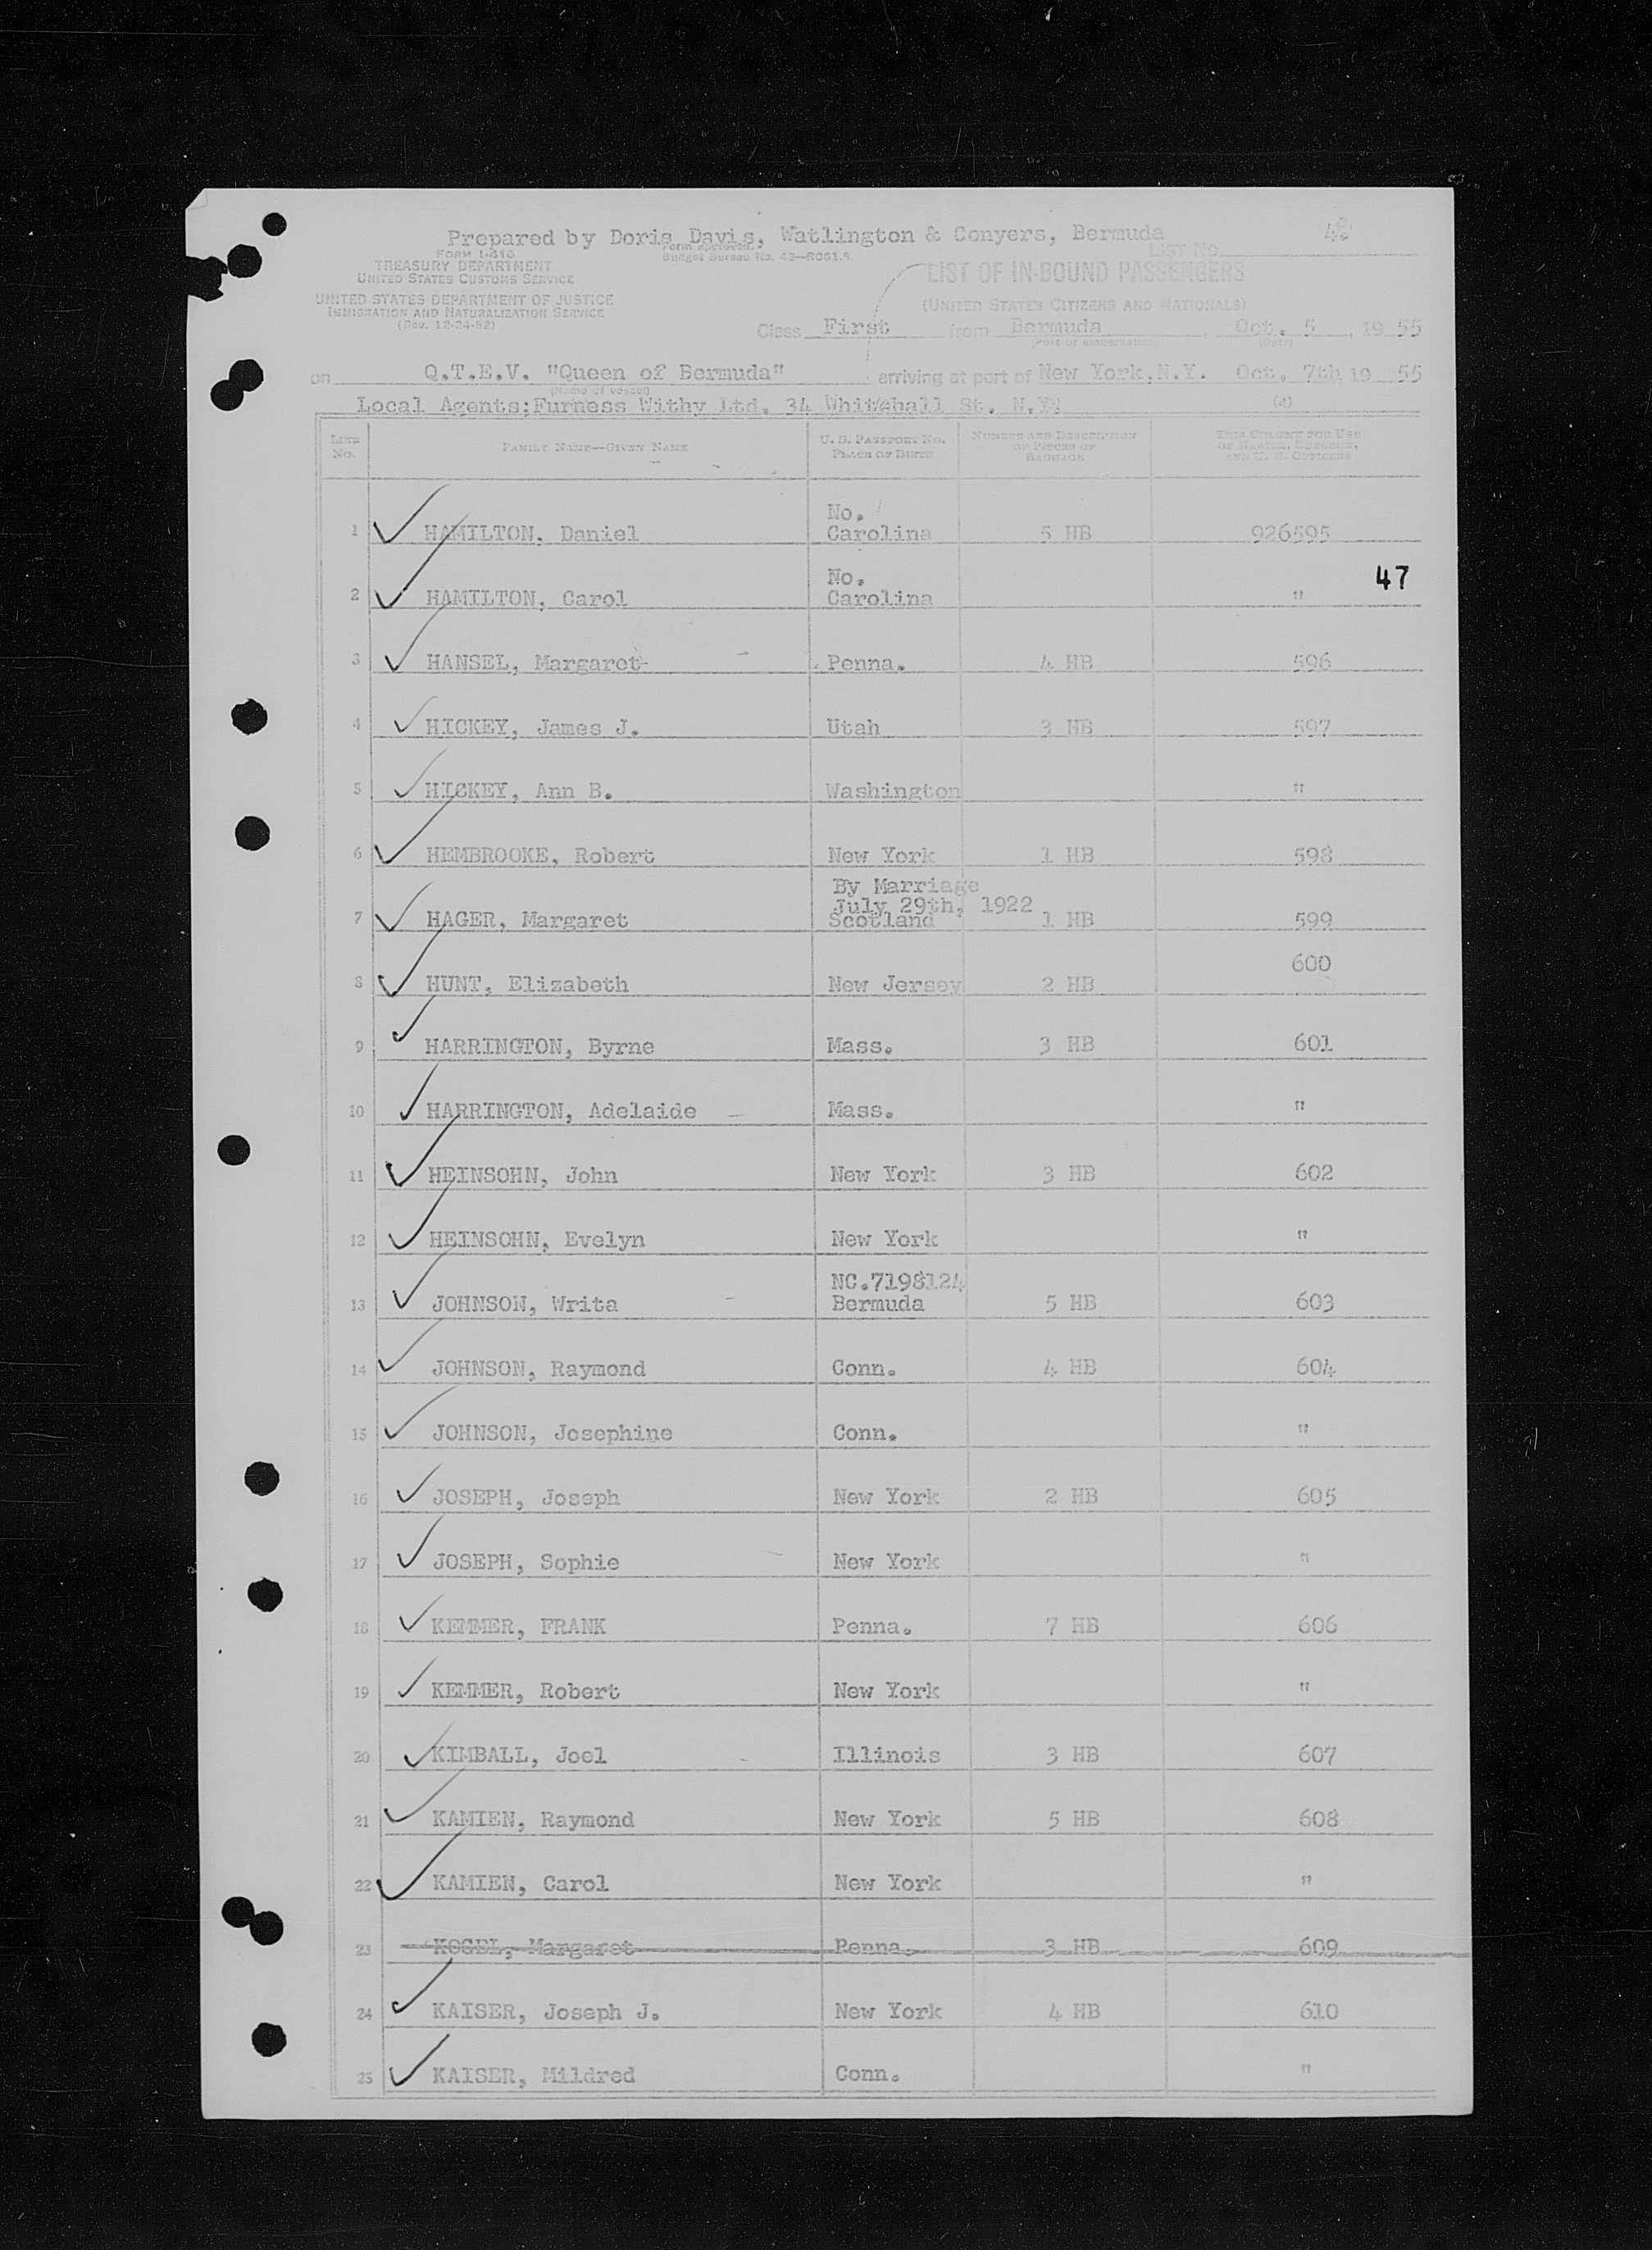 Prepared by Doris Davis, Watlington & Conyers, Bermuda
42
Form Approved.
Budget Bureau No. 43—R061.9.
List No.
FORM I-416
TREASURY DEPARTMENT
UNITED STATES CUSTOMS SERVICE
UNITED STATES DEPARTMENT OF JUSTICE
IMMIGRATION AND NATURALIZATION SERVICE
(Rev. 12-24-52)
LIST OF IN-BOUND PASSENGERS
(UNITED STATES CITIZENS AND NATIONALS)
Class First from Bermuda, Oct. 5, 1955
(Port of embarkation) (Date)
on Q.T.E.V. "Queen of Bermuda" arriving at port of New York, N.Y. Oct. 7th 1955
(Name of vessel)
Local Agents;Furness Withy Ltd. 34 Whitehall St. N.Y.
(4)
LINE No. FAMILY NAME—GIVEN NAME U. S. PASSPORT NO. PLACE OF BIRTH NUMBER AND DESCRIPTION OF PIECES OF BAGGAGE THIS COLUMN FOR USE OF MASTER, SURGEON, AND U. S. OFFICERS
No.
1 HAMILTON, Daniel Carolina 5 HB 926595
No. 47
2 HAMILTON, Carol Carolina "
3 HANSEL, Margaret Penna. 4 HB 596
4 HICKEY, James J. Utah 3 HB 597
5 HICKEY, Ann B. Washington "
6 HEMBROOKE, Robert New York 1 HB 598
By Marriage
July 29th, 1922
7 HAGER, Margaret Scotland 1 HB 599
600
8 HUNT, Elizabeth New Jersey 2 HB
9 HARRINGTON, Byrne Mass. 3 HB 601
10 HARRINGTON, Adelaide Mass. "
11 HEINSOHN, John New York 3 HB 602
12 HEINSOHN, Evelyn New York "
NC.7198124
13 JOHNSON, Writa Bermuda 5 HB 603
14 JOHNSON, Raymond Conn. 4 HB 604
15 JOHNSON, Josephine Conn. "
16 JOSEPH, Joseph New York 2 HB 605
17 JOSEPH, Sophie New York "
18 KEMMER, FRANK Penna. 7 HB 606
19 KEMMER, Robert New York "
20 KIMBALL, Joel Illinois 3 HB 607
21 KAMIEN, Raymond New York 5 HB 608
22 KAMIEN, Carol New York "
23 KOGEL, Margaret Penna. 3 HB 609
24 KAISER, Joseph J. New York 4 HB 610
25 KAISER, Mildred Conn. "